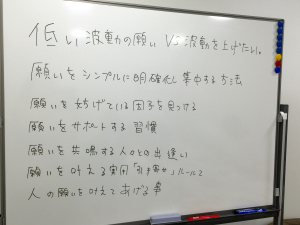 低い波動の願い VS 波動を上げたい。
願いをシンプルに明確化し集中する方法
願いを妨げている因子を見つける
願いをサポートする習慣
願いを共鳴する人々との出逢い
願いを叶える実用「引き寄せ」ルールで
人の願いを叶えてあげる事